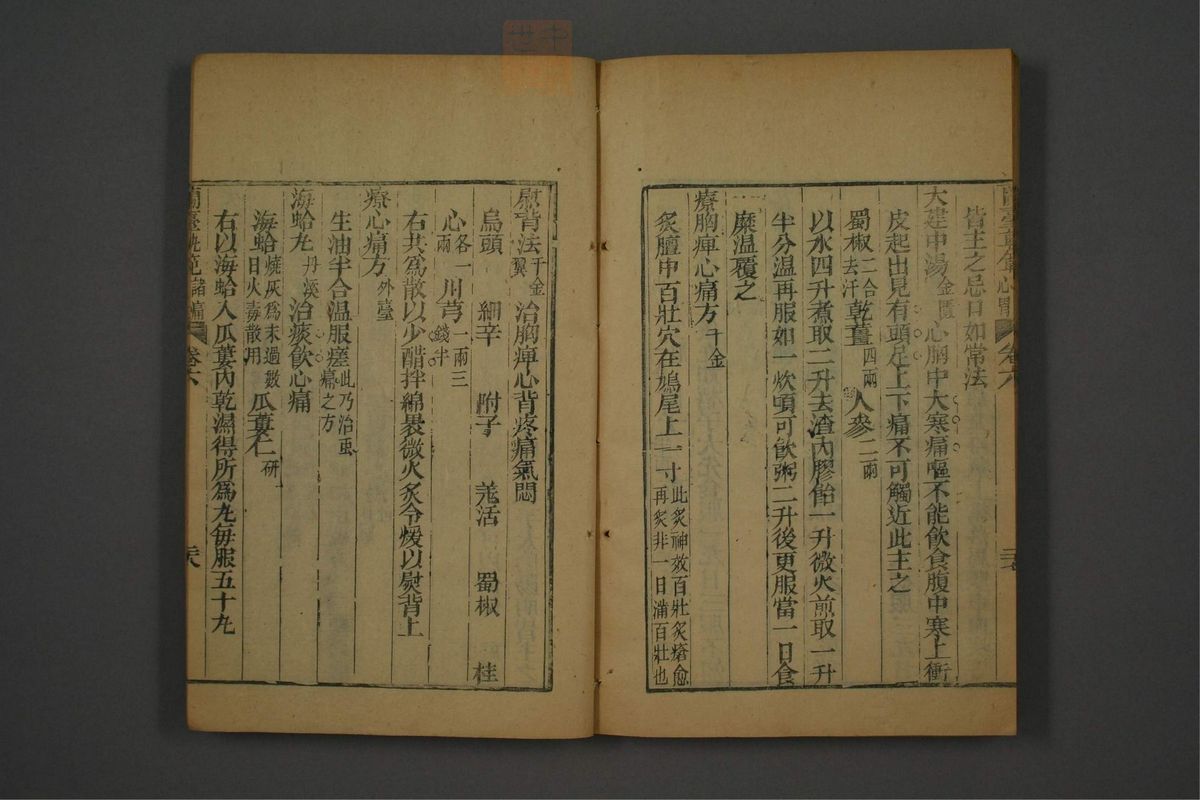 皆主之忌日如常法
大建中湯金匱心胸中大寒痛嘔不能飲食腹中寒上衝
皮起出見有頭足上下痛不可觸近此主之
蜀椒二合去汗乾薑四兩人參二兩
以水四升煮取二升去渣內膠飴一升微火煎取一升
半分温再服如一炊頃可飲粥二升後更服當一日食
糜温覆之
療胸痺心痛方千金
炙膻中百壯穴在鳩尾上一寸此炙神效百壯炙瘡愈再炙非一日滿百壯也
熨背法千金翼治胸痺心背疼痛氣悶
烏頭 細辛 附子 羗活 蜀椒 桂
心各一兩川芎一兩三錢半
右共為散以少醋拌綿褁微火炙令煖以熨背上
療心痛方外臺
生油半合温服瘥此乃治䖝痛之方
海蛤丸丹溪治痰飲心痛
海蛤燒灰為末過數日火毒散用瓜蔞仁研
右以海蛤入瓜蔞內乾濕得所為丸每服五十丸
蘭臺軌範諸痛 卷六 二十八